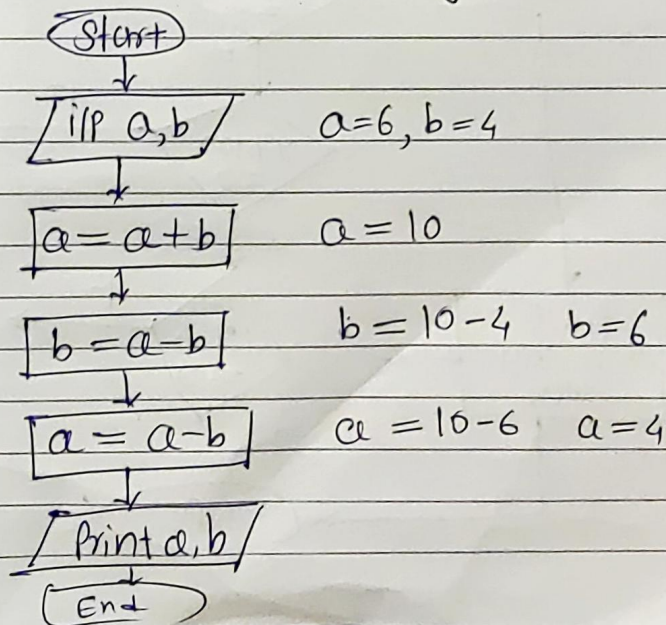 Start
i/p a,b a=6, b=4
a=a+b a=10
b=a-b b=10-4 b=6
a=a-b a=10-6 a=4
Print a,b
End